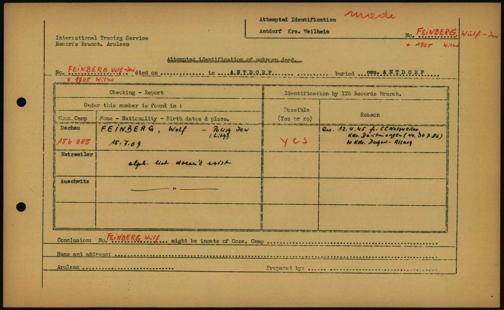 Attempted Identification
made
Antdorf Krs. Weilheim
No. FEINBERG Wulf-Jan
* 1905 Wilna
International Tracing Service
Records Branch, Arolsen
Attempted identification of unknown dead.
No. FEINBERG Wulf-Jan died on in ANTDORF buried cem. ANTDORF
* 1905 Wilna
Checking - Report
Identification by ITS Records Branch.
Under this number is found in :
Possible
(Yes or no)
Reason
Conc.Camp Name - Nationality - Birth dates & place.
Dachau FEINBERG, Wolf - Polish Jew
156 085 15.7.09 yes
Natzweiler alph. list doesn't exist
Auschwitz "
Conclusion: No. FEINBERG Wulf might be inmate of Conc. Camp
Name and address:
Arolsen Prepared by: